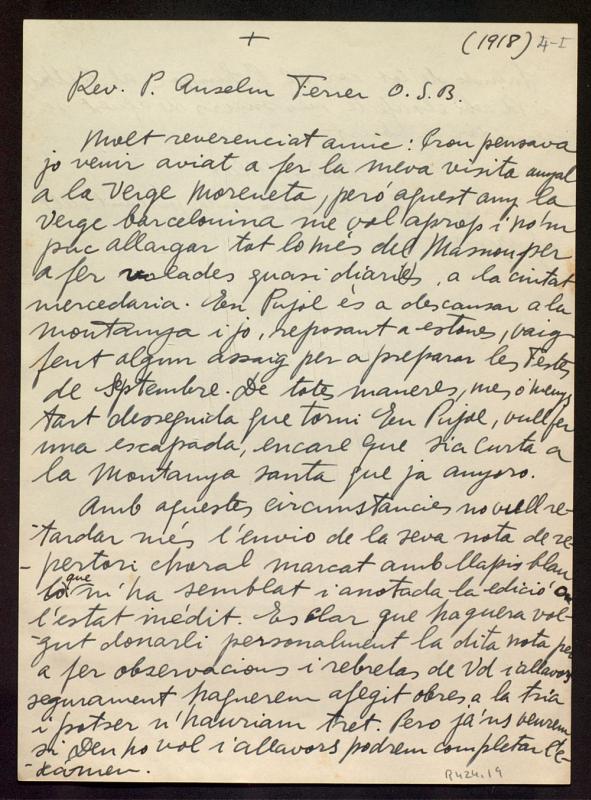 +
(1918) 4-I
Rev. P. Anselm Ferrer O.S.B.
Molt reverenciat amic: Prou pensava
jo venir aviat a fer la meva visita anyal
a la Verge Moreneta, peró aquest any la
Verge barcelonina me vol aprop i no'm
puc allargar tot lo més del Masnou per
a fer volades quasi diaries, a la ciutat
mercedaria. En Pujol és a descansar a la
montanya i jo, reposant a estones, vaig
fent algun assaig per a preparar les Festes
de Septembre. De totes maneres, mes ó menys
tart desseguida que torni En Pujol, vull fer
una escapada, encare que sia curta a
la Montanya santa que ja anyoro.
Amb aquestes circumstancies no vull re-
tardar més l'envio de la seva nota de re-
pertori choral marcat amb llapis blau
lo que m'ha semblat i anotada la edició ou
l'estat inédit. Es clar que haguera vol-
gut donarli personalment la dita nota per
a fer observacions i rebreles de Vd i allavors
segurament haguerem afegit obres a la tría
i potser n'hauriam tret. Pero já'ns veurem
si Deu ho vol i allavors podrem completar l'e-
xámen.
B424.19